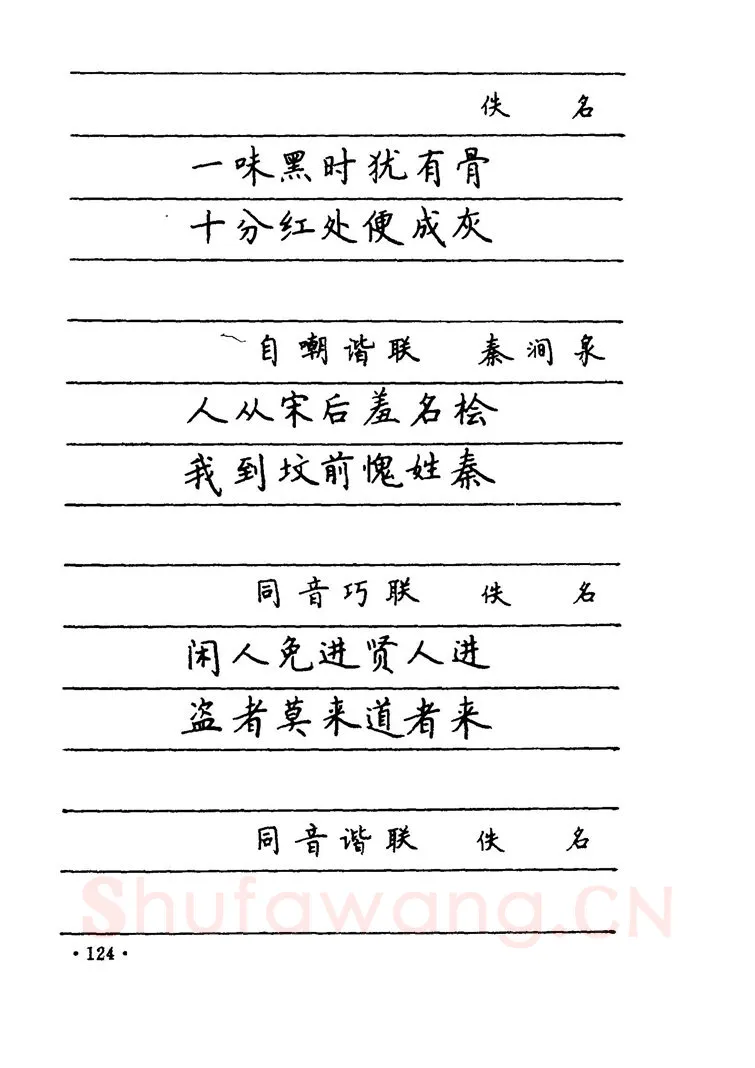 佚 名
一味黑时犹有骨
十分红处便成灰
自嘲谐联 秦涧泉
人从宋后羞名桧
我到坟前愧姓秦
同音巧联 佚 名
闲人免进贤人进
盗者莫来道者来
同音谐联 佚 名
Shufawang.CN
·124·